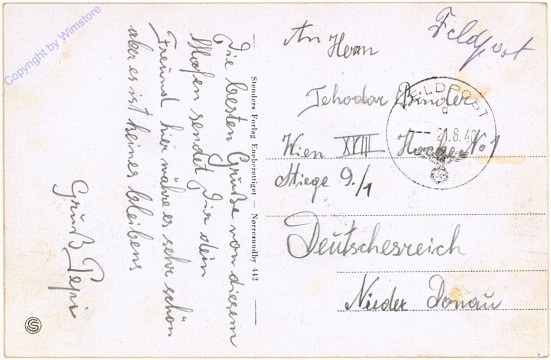 Copyright by Winstore
Feldpost
An Herrn
Tehodor Binder
Wien XVIII Hocke No 1
Stiege 9./1
Deutschesreich
Nieder Donau
FELDPOST
d
21.8.40
Stenders Forlag Eneberettiget - Nørresundby 442
Die besten Grüße von diesem
Hafen sendet Dir dein
Freund hier währe es sehr schön
aber es ist keines bleibens
Gruß Pepi